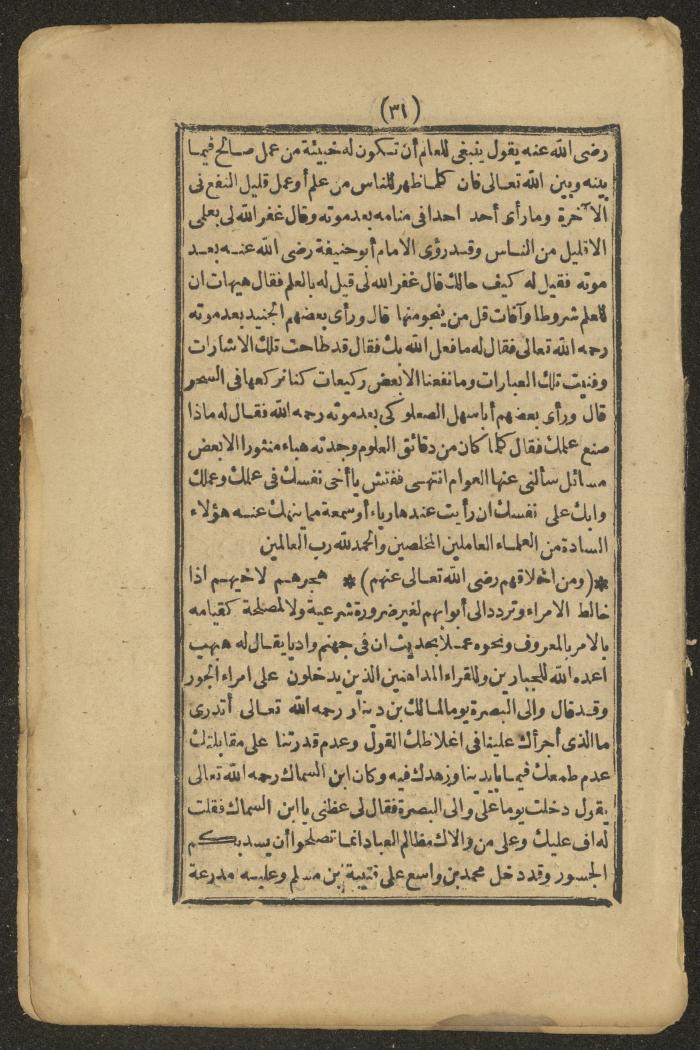 (٣١)
رضى الله عنه يقول ينبغى للعالم أن تكون له خبيئة من عمل صالح فيما
بينه وبين الله تعالى فان كلما ظهر للناس من علم أو عمل قليل النفع فى
الآخرة ومارأى أحد احدا فى منامه بعد موته وقال غفر الله لى بعلمى
الا قليل من الناس وقد رؤى الامام أبو حنيفة رضى الله عنه بعد
موته فقيل له كيف حالك قال غفر الله لى قيل له بالعلم فقال هيهات ان
للعلم شروطا وآفات قل من ينجو منها قال ورأى بعضهم الجنيد بعد موته
رحمه الله تعالى فقال له ما فعل الله بك فقال قد طاحت تلك الاشارات
وفنيت تلك العبارات وما نفعنا الا بعض ركيعات كنا نركعها فى السحر
قال ورأى بعضهم أبا سهل الصعلوكى بعد موته رحمه الله فقال له ماذا
صنع علمك فقال كلما كان من دقائق العلوم وجدته هباء منثورا الا بعض
مسائل سألنى عنها العوام انتهى ففتش يا أخى نفسك فى علمك وعملك
وابك على نفسك ان رأيت عندها رياء أو سمعة مما ينهك عنه هؤلاء
السادة من العلماء العاملين المخلصين والحمد لله رب العالمين
*(ومن اخلاقهم رضى الله تعالى عنهم)* هجرهم لاخيهم اذا
خالط الامراء وتردد الى أبوابهم لغير ضرورة شرعية ولا لمصلحة كقيامه
بالامر بالمعروف ونحوه عملا بحديث ان فى جهنم واديا يقال له هبهب
اعده الله للجبارين وللقراء المداهنين الذين يدخلون على امراء الجور
وقد قال والى البصرة يوما لمالك بن دينار رحمه الله تعالى أتدرى
ما الذى أجرأك علينا فى اغلاظك القول وعدم قدرتنا على مقابلتك
عدم طمعك فيما بأيدينا وزهدك فيه وكان ابن السماك رحمه الله تعالى
يقول دخلت يوما على والى البصرة فقال لى عظنى يا ابن السماك فقلت
له اف عليك وعلى من والاك مظالم العباد انما تصلحوا أن يسد بكم
الجسور وقد دخل محمد بن واسع على قتيبة بن مسلم وعليه مدرعة